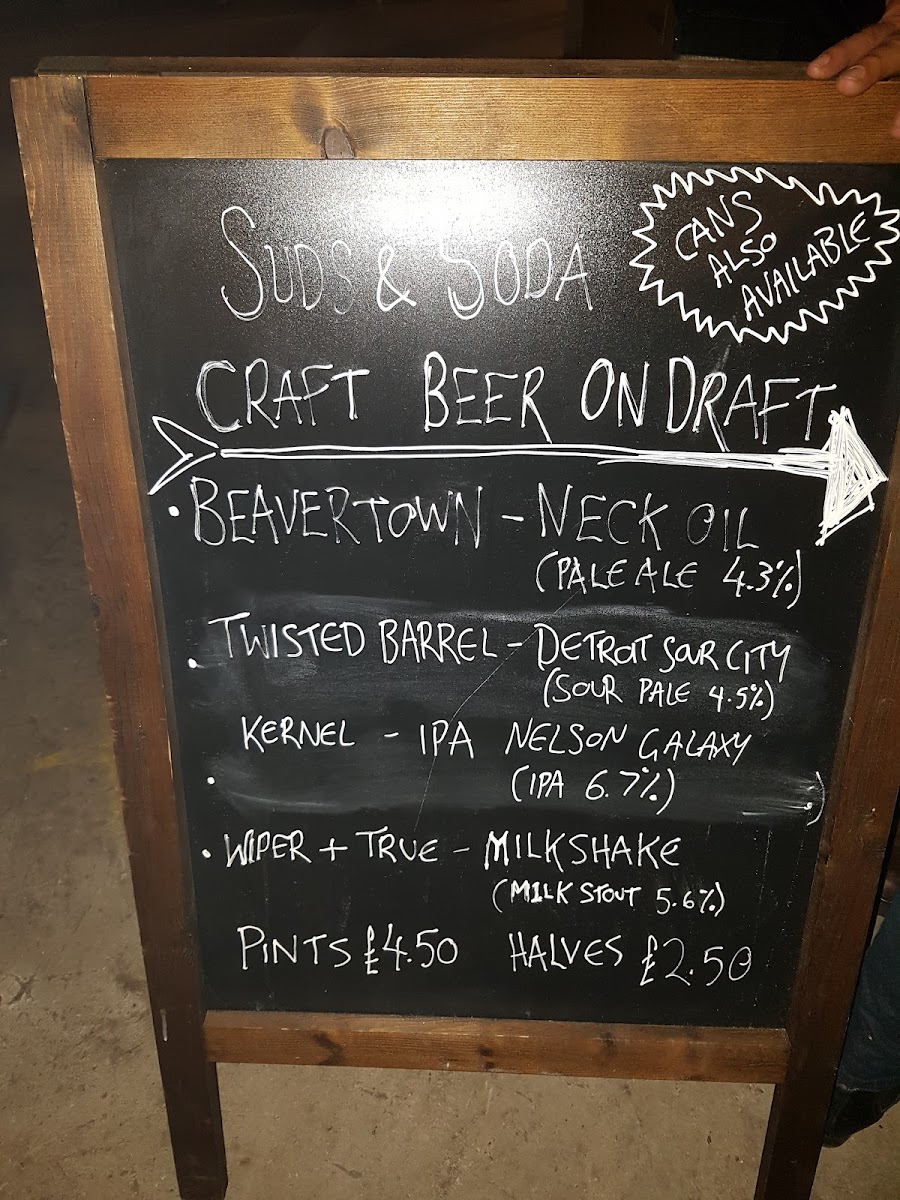 SUDS & SODA
CANS
ALSO
AVAILABLE
CRAFT BEER ON DRAFT
• BEAVERTOWN - NECK OIL
(PALE ALE 4.3%)
• TWISTED BARREL - DETROIT SOUR CITY
(SOUR PALE 4.5%)
KERNEL - IPA NELSON GALAXY
• (IPA 6.7%)
• WIPER + TRUE - MILKSHAKE
(MILK STOUT 5.6%)
PINTS £4.50 HALVES £2.50